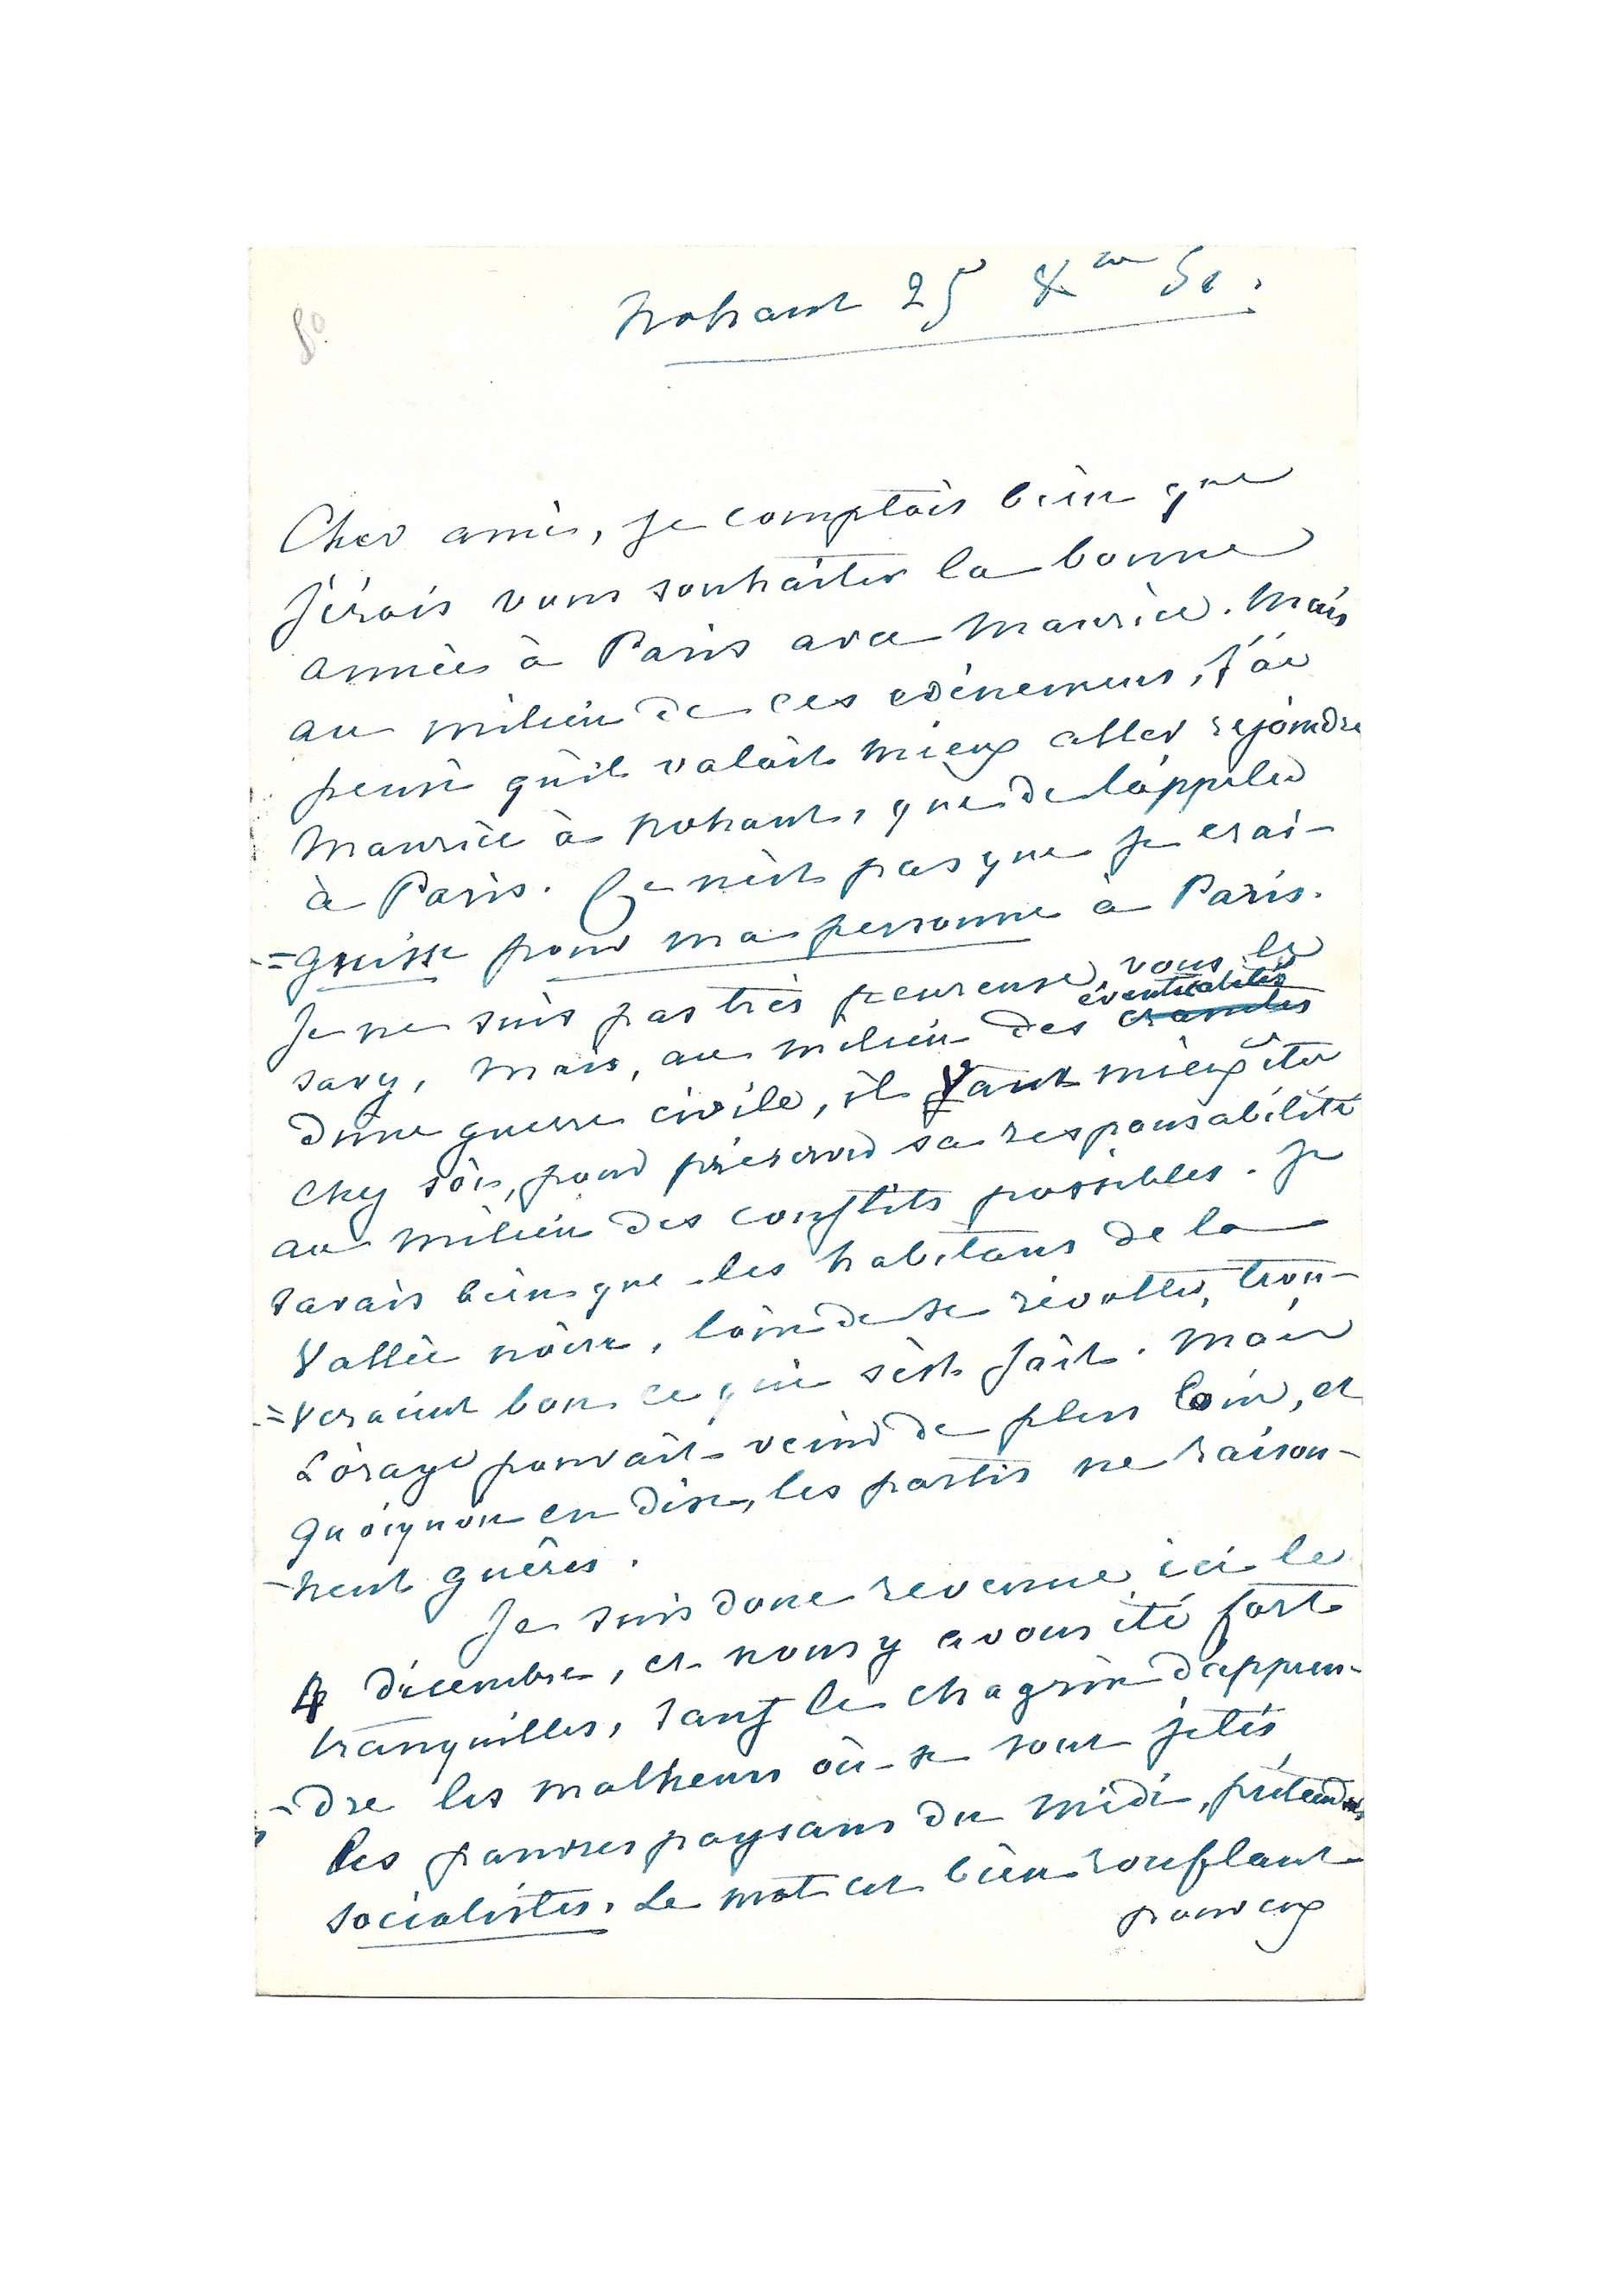 8°
Nohant 25 Xbre 51.
Cher ami, je comptais bien que
j'irais vous souhaiter la bonne
année à Paris avec Maurice. Mais
au milieu de ces évènemens, j'ai
pensé qu'il valait mieux aller rejoindre
Maurice à Nohant, que de l'appeler
à Paris. Ce n'est pas que je crai-
=gnisse pour ma personne à Paris.
Je ne suis pas très peureuse, vous le
savez, mais, au milieu des craintes éventualités
d'une guerre civile, il vaut mieux être
chez soi, pour préserver sa responsabilité
au milieu des conflits possibles. Je
savais bien que les habitans de la
Vallée noire, loin de se révolter, trou-
=veraient bon ce qui s'est fait. Mais
l'orage pouvait venir de plus loin, et
quoiqu'on en dise, les partis ne raison-
-nent guères.
Je suis donc revenue ici le
4 décembre, et nous y avons été fort
tranquilles, sauf le chagrin d'appren-
-dre les malheurs où se sont jetés
les pauvres paysans du midi, prétendus
socialistes. Le mot est bien ronflant
pour eux